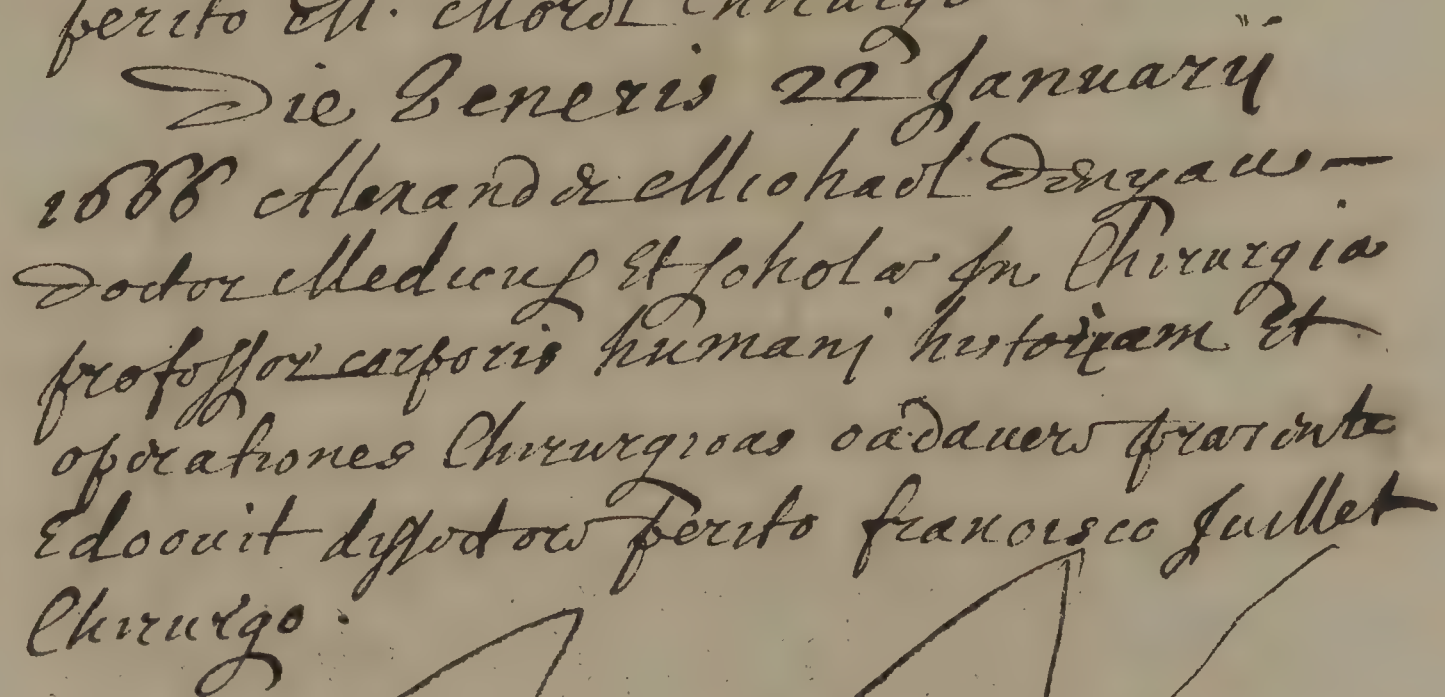 perito M. Morel Chirurgo
Die Veneris 22 Januarij
1666 Alexander Michael Denyau –
Doctor Medicus Et Scholæ In Chirurgia
professor corporis humanj historiam Et
operationes Chirurgicas cadavere præsente
Edocuit dissectore perito francisco Juillet
Chirurgo .